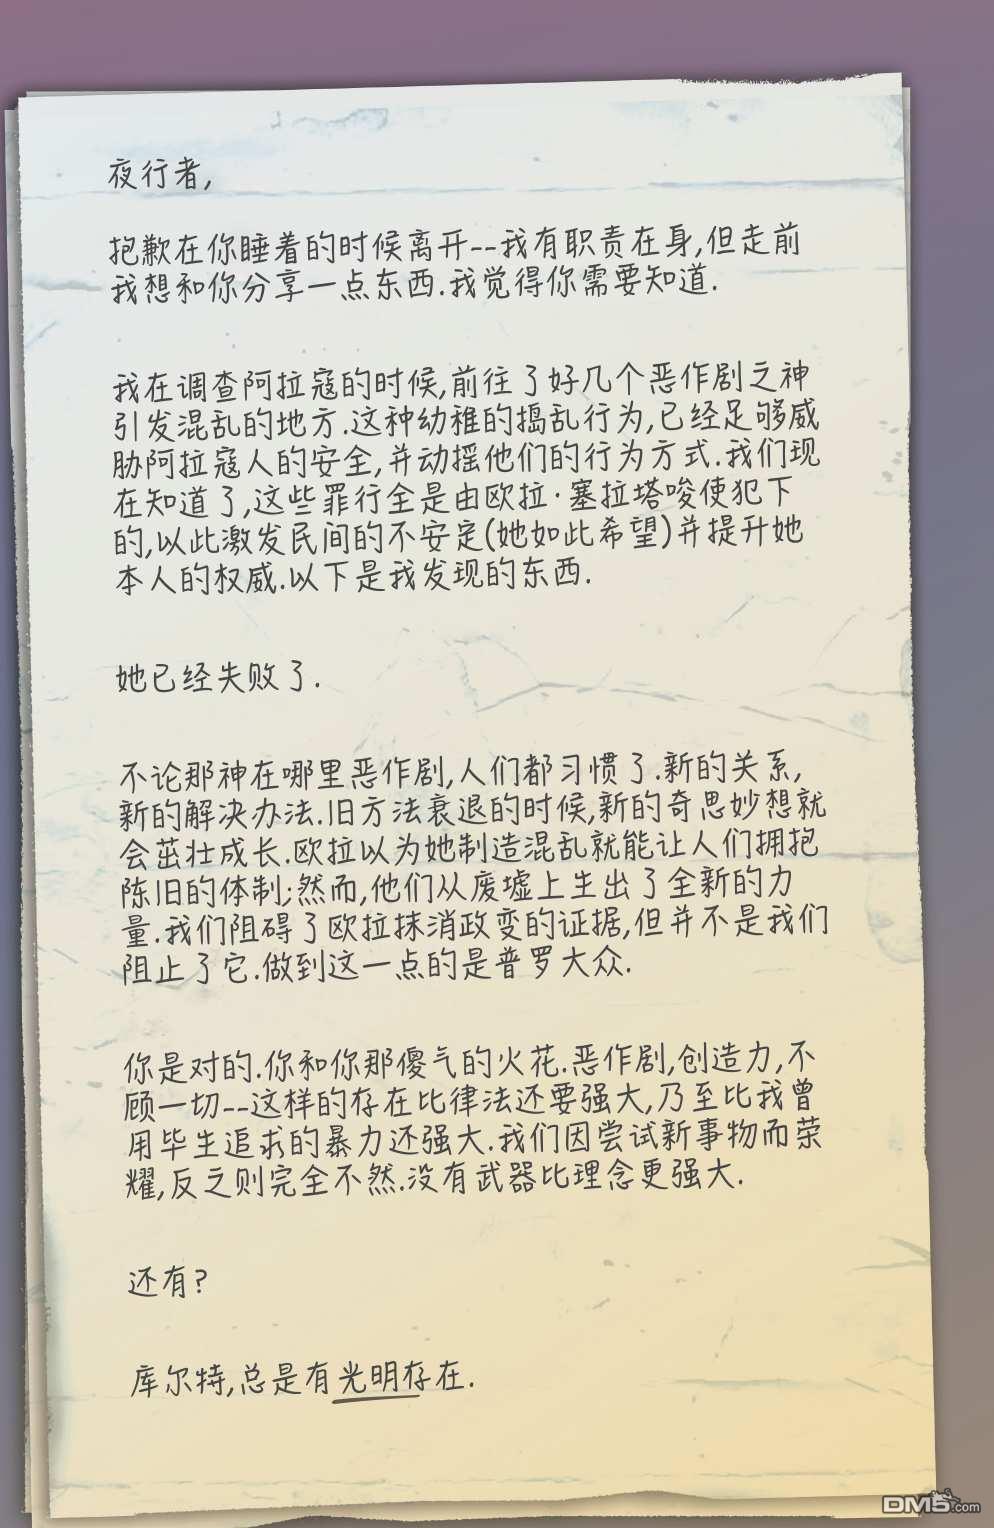 夜行者,
抱歉在你睡着的时候离开--我有职责在身,但走前
我想和你分享一点东西.我觉得你需要知道.
我在调查阿拉寇的时候,前往了好几个恶作剧之神
引发混乱的地方.这种幼稚的捣乱行为,已经足够威
胁阿拉寇人的安全,并动摇他们的行为方式.我们现
在知道了,这些罪行全是由欧拉·塞拉塔唆使犯下
的,以此激发民间的不安定(她如此希望)并提升她
本人的权威.以下是我发现的东西.
她已经失败了.
不论那神在哪里恶作剧,人们都习惯了.新的关系,
新的解决办法.旧方法衰退的时候,新的奇思妙想就
会茁壮成长.欧拉以为她制造混乱就能让人们拥抱
陈旧的体制;然而,他们从废墟上生出了全新的力
量.我们阻碍了欧拉抹消政变的证据,但并不是我们
阻止了它.做到这一点的是普罗大众.
你是对的.你和你那傻气的火花.恶作剧,创造力,不
顾一切--这样的存在比律法还要强大,乃至比我曾
用毕生追求的暴力还强大.我们因尝试新事物而荣
耀,反之则完全不然.没有武器比理念更强大.
还有?
库尔特,总是有光明存在.
DM5.com